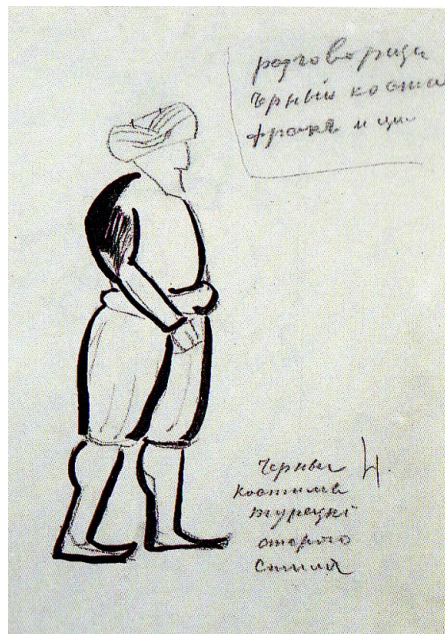 разговорщи
Чрный костю
фракъ и ци
Черны
костюмъ
турецкi
старого
стиля